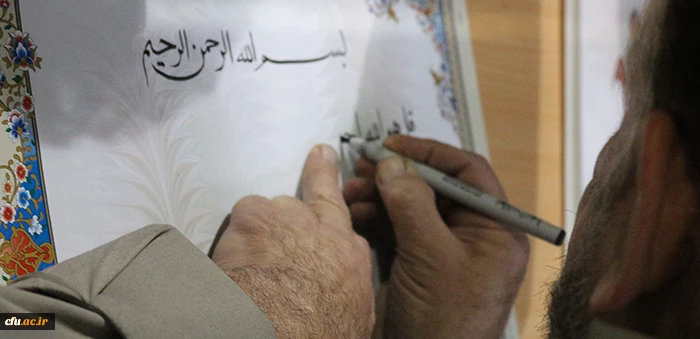 بسم الله الرحمن الرحیم
قل هو الله
cfu.ac.ir